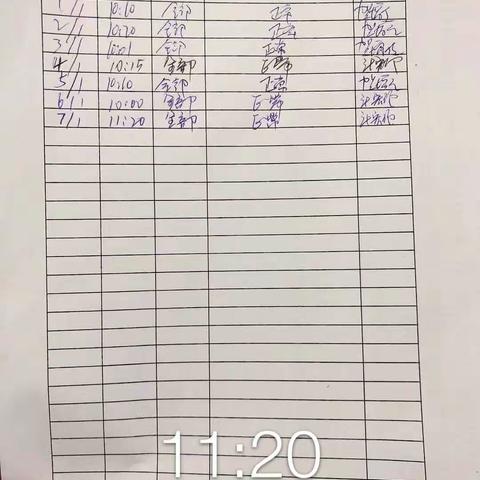 1/1 10:10 全部 正常
2/1 10:20 全部 正常
3/1 10:01 全部 正常
4/1 10:15 全部 正常
5/1 10:10 全部 正常
6/1 10:00 全部 正常
7/1 11:20 全部 正常
11:20